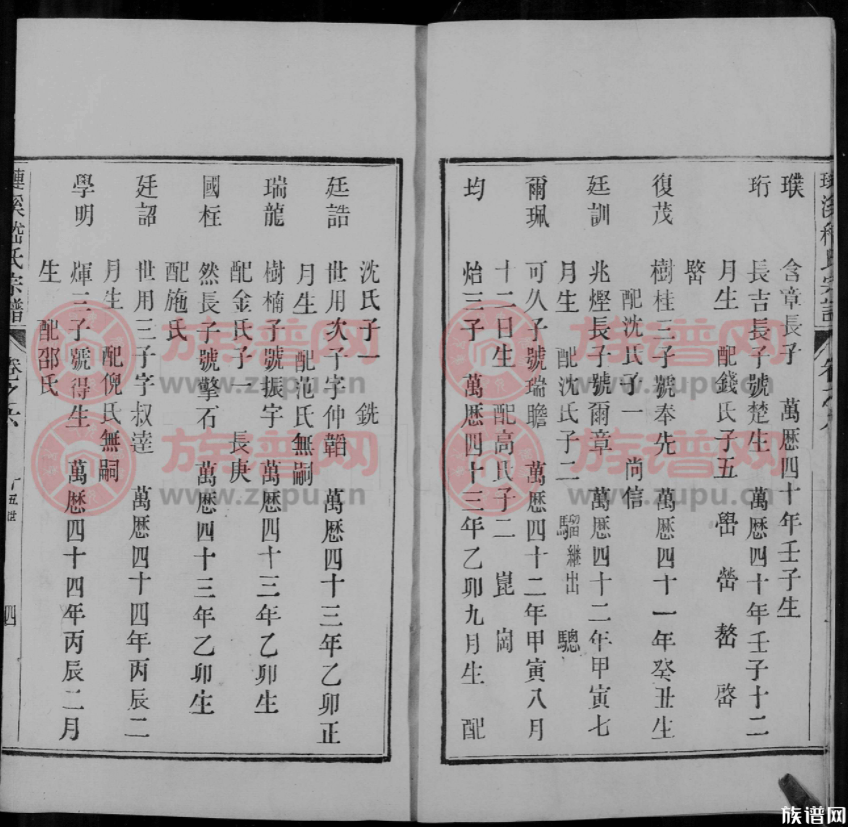 璞 含章長子 萬歷四十年壬子生
珩 長吉長子號楚生 萬歷四十年壬子十二
月生 配錢氏子五
復茂 樹桂三子號奉先 萬歷四十一年癸丑生
配沈氏子一 尚信
廷訓 兆煙長子號爾章 萬歷四十二年甲寅七
月生 配沈氏子二 騮繼出 驄
爾珮 可久子號瑞瞻 萬歷四十二年甲寅八月
十二日生 配高氏子二 崑 岡
均 炲三子 萬歷四十三年乙卯九月生 配
沈氏子一 銑
廷誥 世用次子字仲韜 萬歷四十三年乙卯正
月生 配范氏無嗣
瑞龍 樹楠子號振宇 萬歷四十三年乙卯生
配金氏子一 長庚
國柱 然長子號擎石 萬歷四十三年乙卯生
配施氏
廷詔 世用三子字叔達 萬歷四十四年丙辰二
月生 配倪氏無嗣
學明 煇三子號得生 萬歷四十四年丙辰二月
生 配邵氏
漣溪嵇氏宗譜 卷之六 十五世 四
族谱网
www.zupu.cn
族谱网
www.zupu.cn
族谱网
www.zupu.cn
族谱网
www.zupu.cn
族谱网